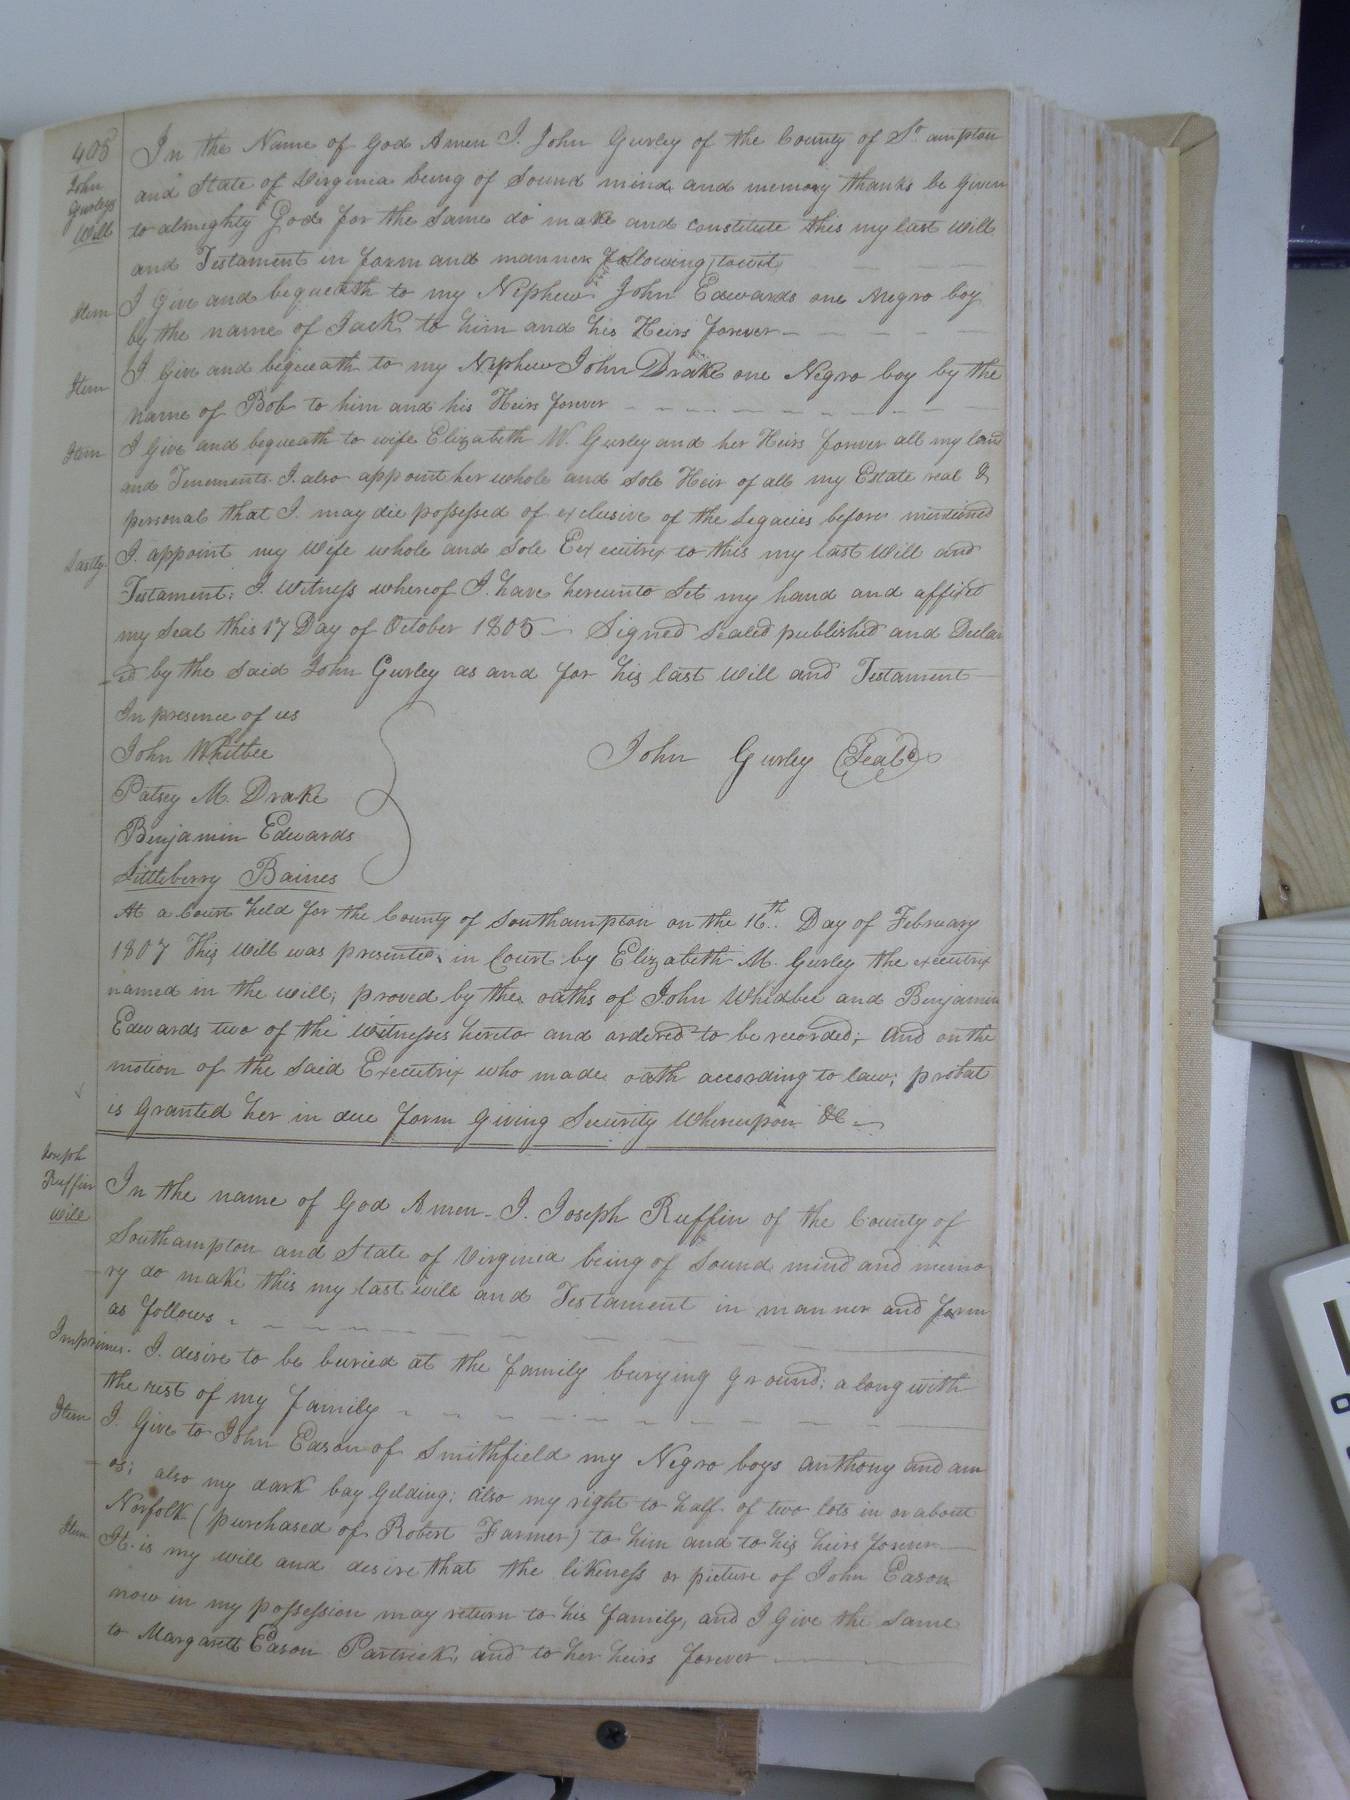 408
John
Gurleys
Will
In the Name of God Amen I. John Gurley of the County of So. ampton
and State of Virginia being of Sound mind and memory thanks be given
to almighty God for the Same do make and constitute this my last Will
and Testament in form and manner following towit
Item I Give and bequeath to my Nephew John Edwards one Negro boy
by the name of Jack to him and his Heirs forever
Item I Give and bequeath to my Nephew John Drake one Negro boy by the
name of Bob to him and his Heirs forever
Item I Give and bequeath to wife Elizabeth W. Gurley and her Heirs forever all my land
and Tenements. I also appoint her whole and Sole Heir of all my Estate real &
personal that I may die possessed of exclusive of the Legacies before mentioned
Lastly. I appoint my Wife whole and Sole Executrix to this my last Will and
Testament; I. Witness whereof I have hereunto Set my hand and affixed
my Seal this 17 Day of October 1805 — Signed Sealed published and Declar
ed by the Said John Gurley as and for his last Will and Testament
In presence of us
John Whitbee
John Gurley (Seal)
Patsey M. Drake
Benjamin Edwards
Littleberry Baines
At a Court held for the County of Southampton on the 16th. Day of February
1807 This Will was presented in Court by Elizabeth M. Gurley the executrix
named in the will; proved by the oaths of John Whidbee and Benjamin
Edwards two of the Witnesses hereto and ordered to be recorded; And on the
motion of the Said Executrix who made oath according to law; probat
is Granted her in due form Giving Security Whereupon &c
Joseph
Ruffin
will
In the name of God Amen. I. Joseph Ruffin of the County of
Southampton and State of Virginia being of Sound mind and memo
ry do make this my last will and Testament in manner and form
as follows.
Imprimes. I. desire to be buried at the family burying Ground; along with
the rest of my family
Item I. Give to John Eason of Smithfield my Negro boys anthony and am
os; also my dark bay Gelding; also my right to half of two lots in or about
Norfolk (purchased of Robert Farmer) to him and to his heirs forever
Item It is my will and desire that the likeness or picture of John Eason
now in my possession may return to his family, and I Give the Same
to Margarett Eason Partrick, and to her heirs forever